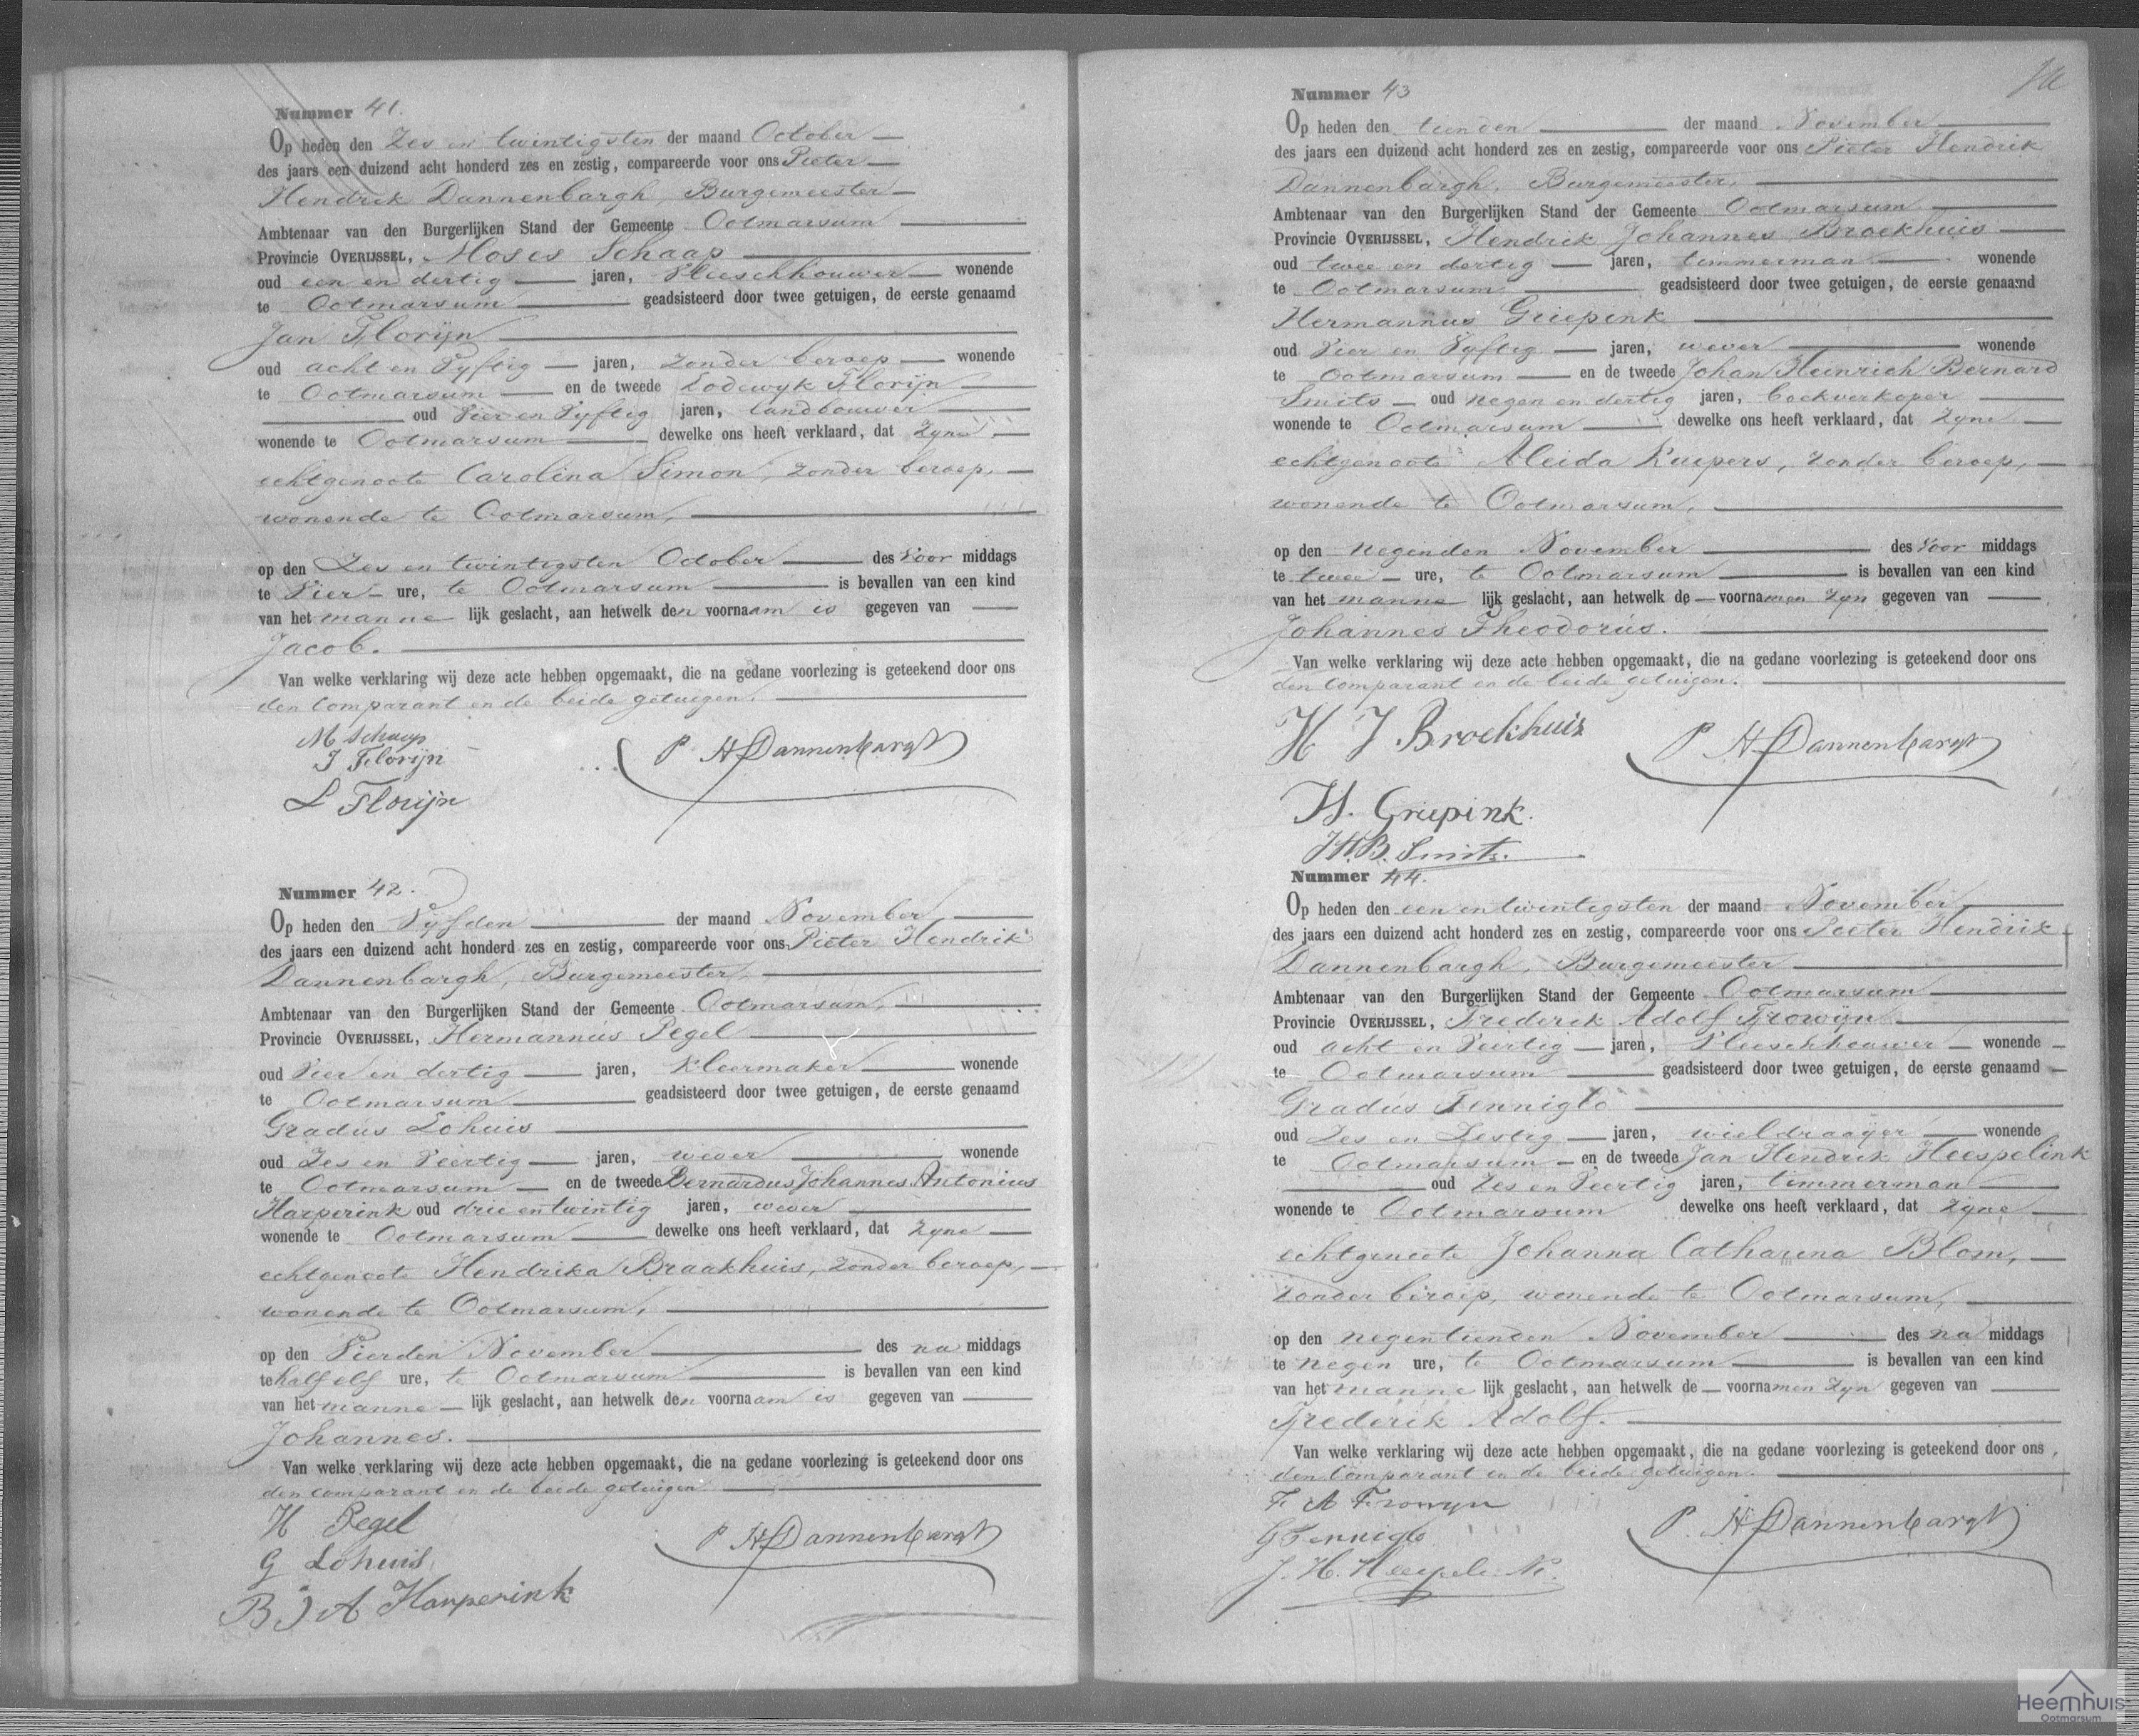 Nummer 41.
Op heden den Zes en twintigsten der maand October
des jaars een duizend acht honderd zes en zestig, compareerde voor ons Pieter
Hendrik Dannenbargh, Burgemeester
Ambtenaar van den Burgerlijken Stand der Gemeente Ootmarsum
Provincie OVERIJSSEL, Moses Schaap
oud een en dertig jaren, Vleeschhouwer wonende
te Ootmarsum geadsisteerd door twee getuigen, de eerste genaamd
Jan Florijn
oud acht en Vyftig jaren, zonder beroep wonende
te Ootmarsum en de tweede Lodewyk Florijn
oud Vier en Vyftig jaren, landbouwer
wonende te Ootmarsum dewelke ons heeft verklaard, dat Zyne
echtgenoote Carolina Simon, zonder beroep,
wonende te Ootmarsum,
op den Zes en twintigsten October des Voor middags
te Vier ure, te Ootmarsum is bevallen van een kind
van het manne lijk geslacht, aan hetwelk den voornaam is gegeven van
Jacob.
Van welke verklaring wij deze acte hebben opgemaakt, die na gedane voorlezing is geteekend door ons
den Comparant en de beide getuigen.
M Schaap
J Florijn
P H Dannenbargh
L Florijn
Nummer 42.
Op heden den Vyfden der maand November
des jaars een duizend acht honderd zes en zestig, compareerde voor ons Pieter Hendrik
Dannenbargh, Burgemeester,
Ambtenaar van den Burgerlijken Stand der Gemeente Ootmarsum,
Provincie OVERIJSSEL, Hermannus Pegel
oud Vier en dertig jaren, Kleermaker wonende
te Ootmarsum geadsisteerd door twee getuigen, de eerste genaamd
Gradus Lohuis
oud Zes en Veertig jaren, wever wonende
te Ootmarsum en de tweede Bernardus Johannes Antonius
Harperink oud drie en twintig jaren, wever
wonende te Ootmarsum dewelke ons heeft verklaard, dat Zyne
echtgenoote Hendrika Braakhuis, zonder beroep,
wonende te Ootmarsum,
op den Vierden November des na middags
te half elf ure, te Ootmarsum is bevallen van een kind
van het manne lijk geslacht, aan hetwelk den voornaam is gegeven van
Johannes.
Van welke verklaring wij deze acte hebben opgemaakt, die na gedane voorlezing is geteekend door ons
den Comparant en de beide getuigen
H Pegel
P H Dannenbargh
G Lohuis
B J A Harperink
Nummer 43
Op heden den tienden der maand November
des jaars een duizend acht honderd zes en zestig, compareerde voor ons Pieter Hendrik
Dannenbargh, Burgemeester,
Ambtenaar van den Burgerlijken Stand der Gemeente Ootmarsum
Provincie OVERIJSSEL, Hendrik Johannes Broekhuis
oud twee en dertig jaren, timmerman wonende
te Ootmarsum geadsisteerd door twee getuigen, de eerste genaamd
Hermannus Griepink
oud Vier en Vyftig jaren, wever wonende
te Ootmarsum en de tweede Johan Heinrich Bernard
Smits oud negen en dertig jaren, boekverkoper
wonende te Ootmarsum dewelke ons heeft verklaard, dat Zyne
echtgenoote Aleida Kuipers, zonder beroep,
wonende te Ootmarsum,
op den negenden November des Voor middags
te twee ure, te Ootmarsum is bevallen van een kind
van het manne lijk geslacht, aan hetwelk de voornamen zyn gegeven van
Johannes Theodorus.
Van welke verklaring wij deze acte hebben opgemaakt, die na gedane voorlezing is geteekend door ons
den Comparant en de beide getuigen.
H J Broekhuis
P H Dannenbargh
H. Griepink.
J H B. Smits.
Nummer 44.
Op heden den een en twintigsten der maand November
des jaars een duizend acht honderd zes en zestig, compareerde voor ons Pieter Hendrik
Dannenbargh, Burgemeester
Ambtenaar van den Burgerlijken Stand der Gemeente Ootmarsum
Provincie OVERIJSSEL, Frederik Adolf Frowyn
oud acht en Veertig jaren, Vleeschhouwer wonende
te Ootmarsum geadsisteerd door twee getuigen, de eerste genaamd
Gradus Tenniglo
oud Zes en Zestig jaren, wieldraayer wonende
te Ootmarsum en de tweede Jan Hendrik Heespelink
oud Zes en Veertig jaren, timmerman
wonende te Ootmarsum dewelke ons heeft verklaard, dat Zyne
echtgenoote Johanna Catharina Blom,
zonder beroep, wonende te Ootmarsum,
op den negentienden November des na middags
te negen ure, te Ootmarsum is bevallen van een kind
van het manne lijk geslacht, aan hetwelk de voornamen zyn gegeven van
Frederik Adolf.
Van welke verklaring wij deze acte hebben opgemaakt, die na gedane voorlezing is geteekend door ons
den Comparant en de beide getuigen.
F A Frowyn
P. H Dannenbargh
G Tenniglo
J. H.
Heemhuis
Ootmarsum